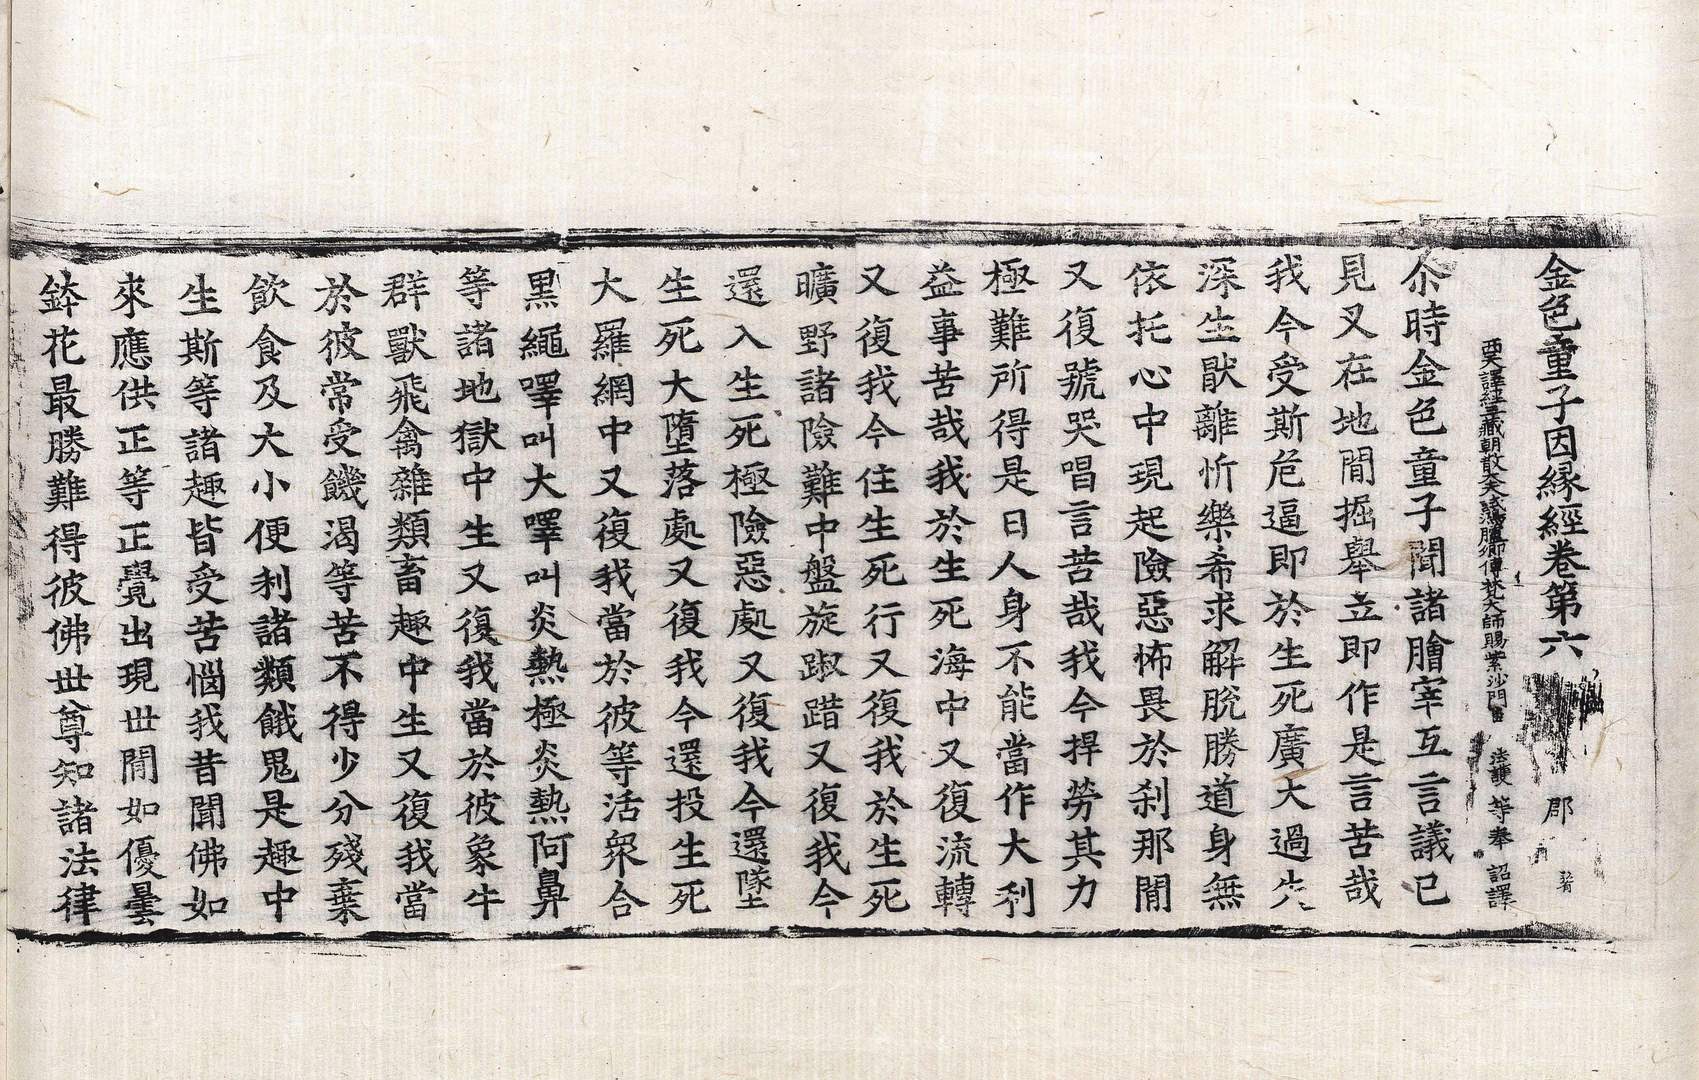 金色童子因縁經卷第六 郡
西天譯經三藏朝散大夫試鴻臚卿傳梵大師賜紫沙門臣 法護 等奉 詔譯
尒時金色童子聞諸膾宰互言議已
見叉在地間掘舉立即作是言苦哉
我今受斯危逼即於生死廣大過失
深生猒離忻樂希求解脫勝道身無
依托心中現起險惡怖畏於刹那間
又復號哭唱言苦哉我今捍勞其力
極難所得是日人身不能當作大利
益事苦哉我於生死海中又復流轉
又復我今住生死行又復我於生死
曠野諸險難中盤旋踧踖又復我今
還入生死極險惡處又復我今還墜
生死大墮落處又復我今還投生死
大羅網中又復我當於彼等活衆合
黑繩嘷叫大嘷叫炎熱極炎熱阿鼻
等諸地獄中生又復我當於彼象牛
群獸飛禽雜類畜趣中生又復我當
於彼常受饑渴等苦不得少分殘棄
飲食及大小便利諸類餓鬼是趣中
生斯等諸趣皆受苦惱我昔聞佛如
來應供正等正覺出現世間如優曇
鉢花最勝難得彼佛世尊知諸法律